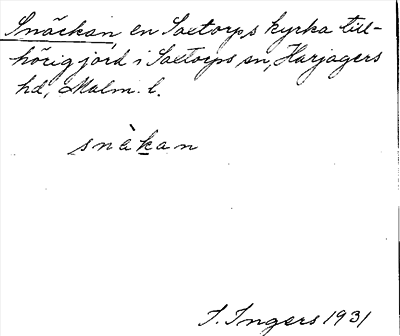 Snäckan, en Saxtorps kyrka till-
hörig jord i Saxtorps sn, Harjagers
hd, Malm. l.
snäkan
I. Ingers 1931